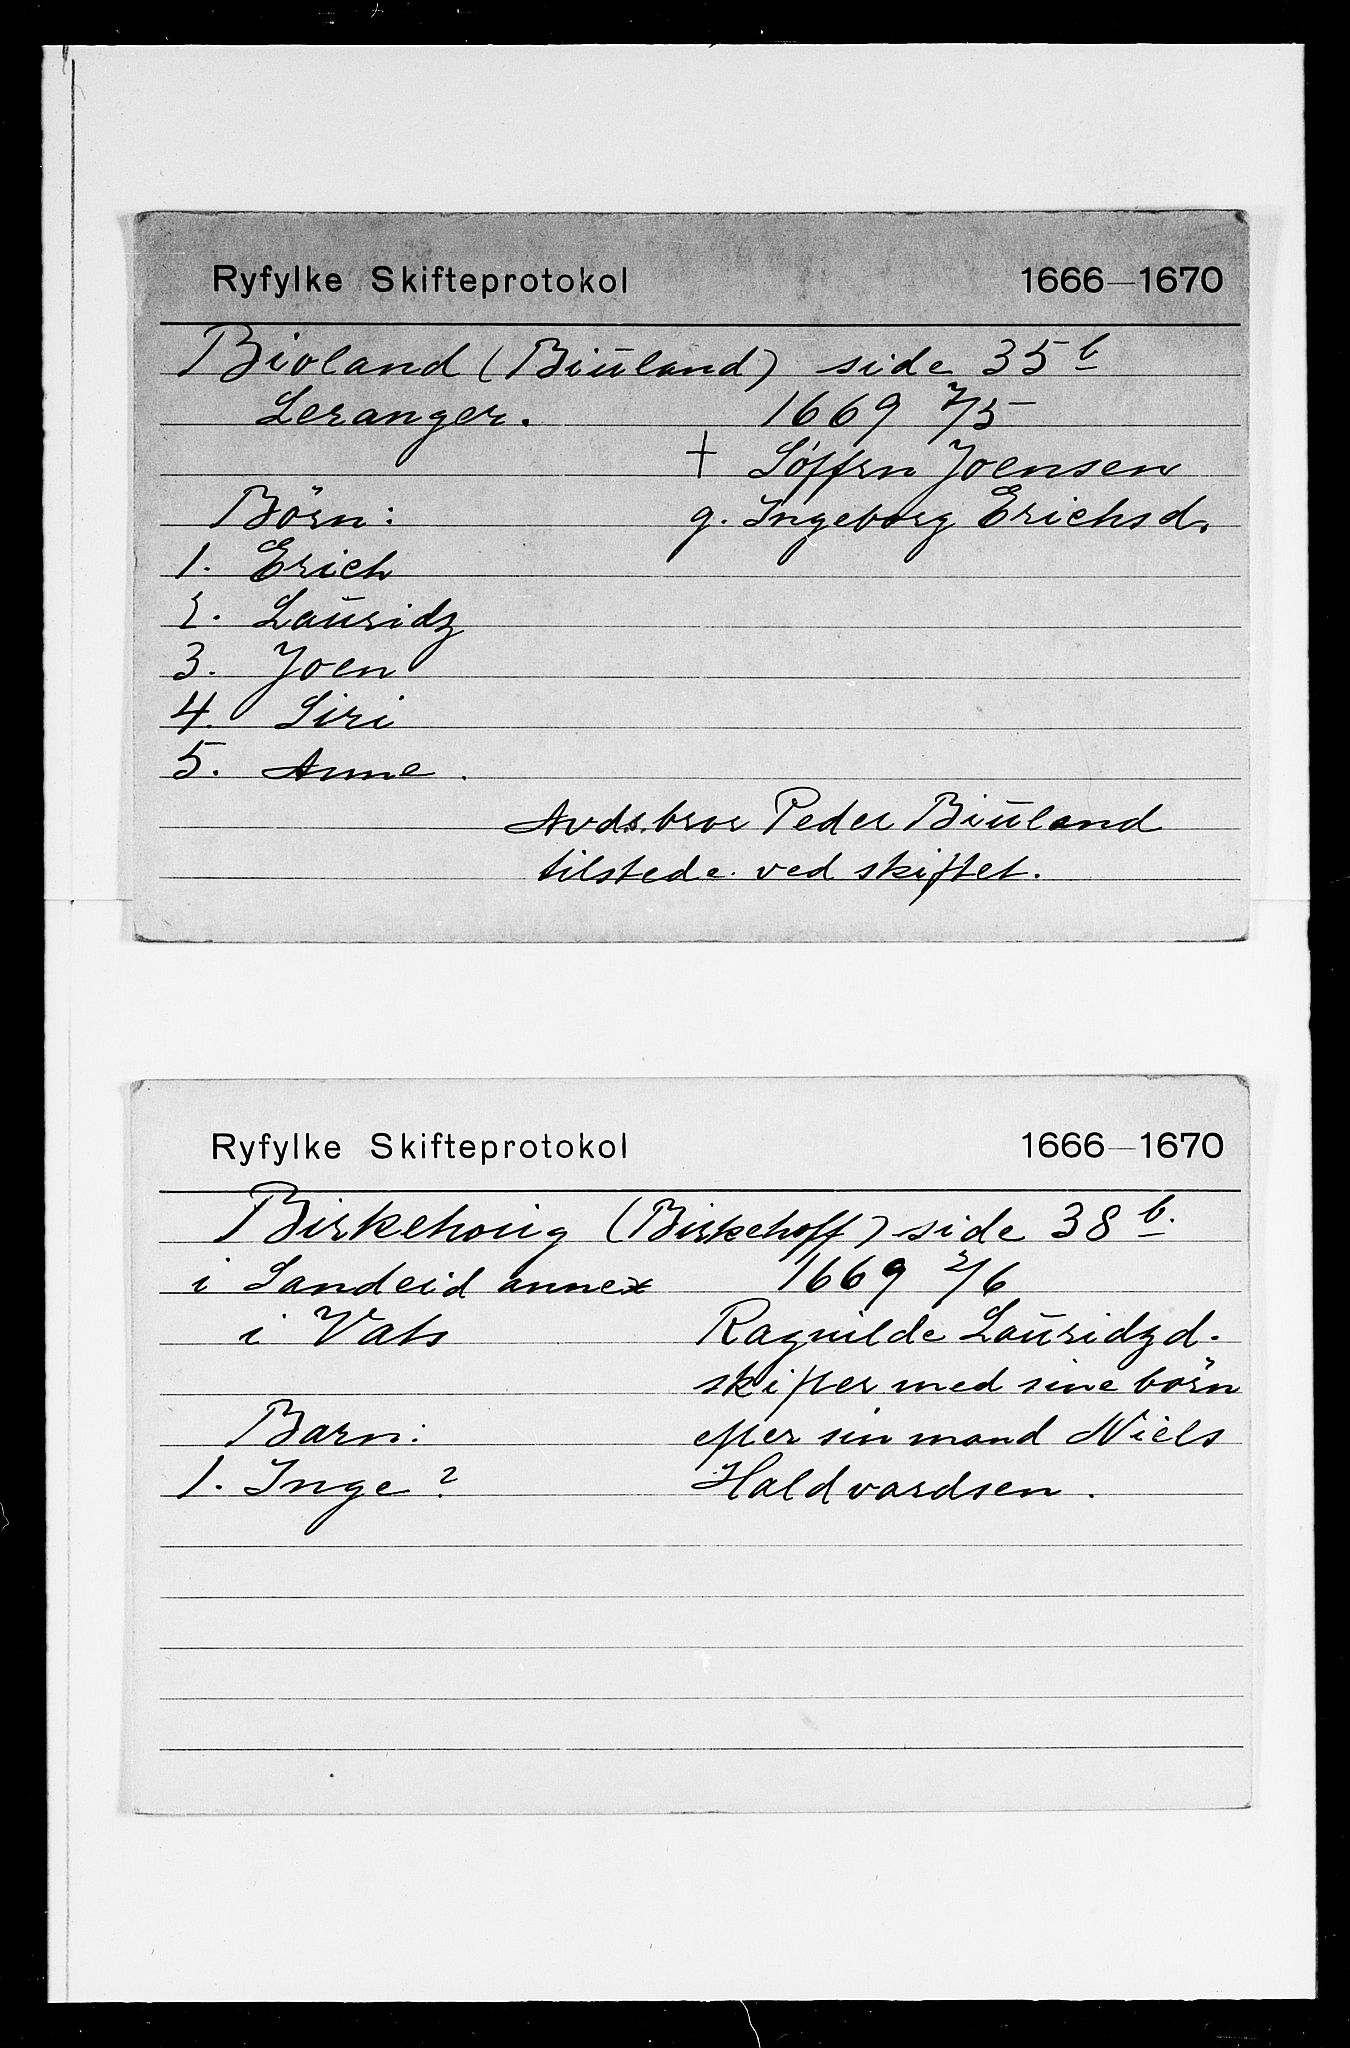 Ryfylke Skifteprotokol 1666—1670
Bioland (Biūland) side 35 b
Leranger. 1669 7/5
† Söffrn Joensen
Börn: g. Ingeborg Erichsd.
1. Erich
2. Laūridz
3. Joen
4. Siri
5. Anne.
Avds. bror Peder Biūland
tilstede ved skiftet.
Ryfylke Skifteprotokol 1666—1670
Birkehoūg (Birkehoff) side 38 b.
i Sandeid annex 1669 2/6
i Vats Ragnilde Laūridzd.
skifter med sine börn
Barn: efter sin mand Niels
1. Inge? Haldvardsen.